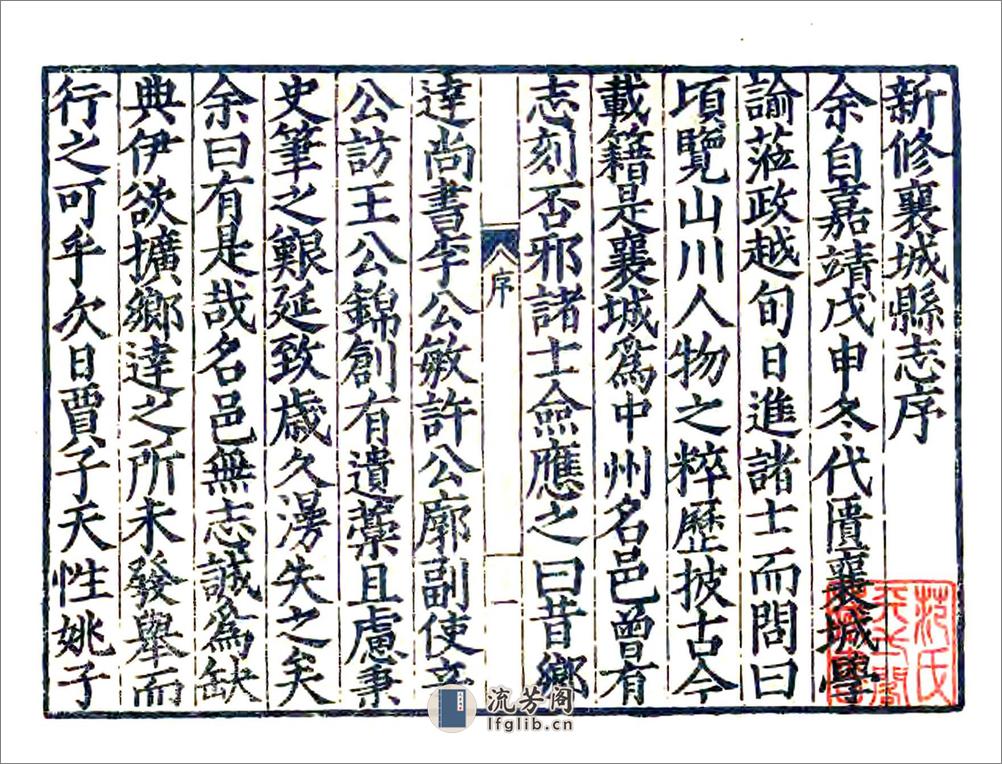 新修襄城縣志序
余自嘉靖戊申冬代匱襄城學
諭蒞政越旬日進諸士而問曰
頃覽山川人物之粹歷披古今
載籍是襄城為中州名邑曾有
志刻否邪諸士僉應之曰昔鄉
序
一
達尚書李公敏許公廓副使辛
公訪王公錦創有遺藁且慮秉
史筆之艱延致歲久湯失之矣
余曰有是哉名邑無志誠為缺
典伊欲擴鄉達之所未發舉而
行之可乎欠日賈子天性姚子
范氏天一閣
流芳阁
lfglib.cn